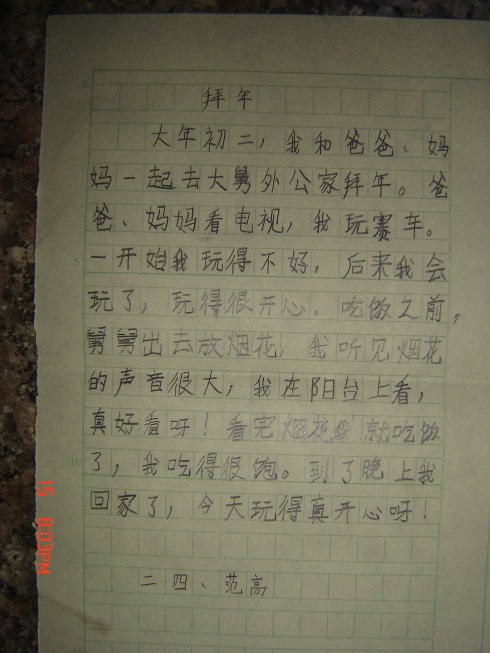 拜年
大年初二，我和爸爸、妈
妈一起去大舅外公家拜年。爸
爸、妈妈看电视，我玩赛车。
一开始我玩得不好，后来我会
玩了，玩得很开心。吃饭之前，
舅舅出去放烟花，我听见烟花
的声音很大，我在阳台上看，
真好看呀！看完烟花我就吃饭
了，我吃得很饱。到了晚上我
回家了，今天玩得真开心呀！
二四、范高
5
10
15 8:03PM